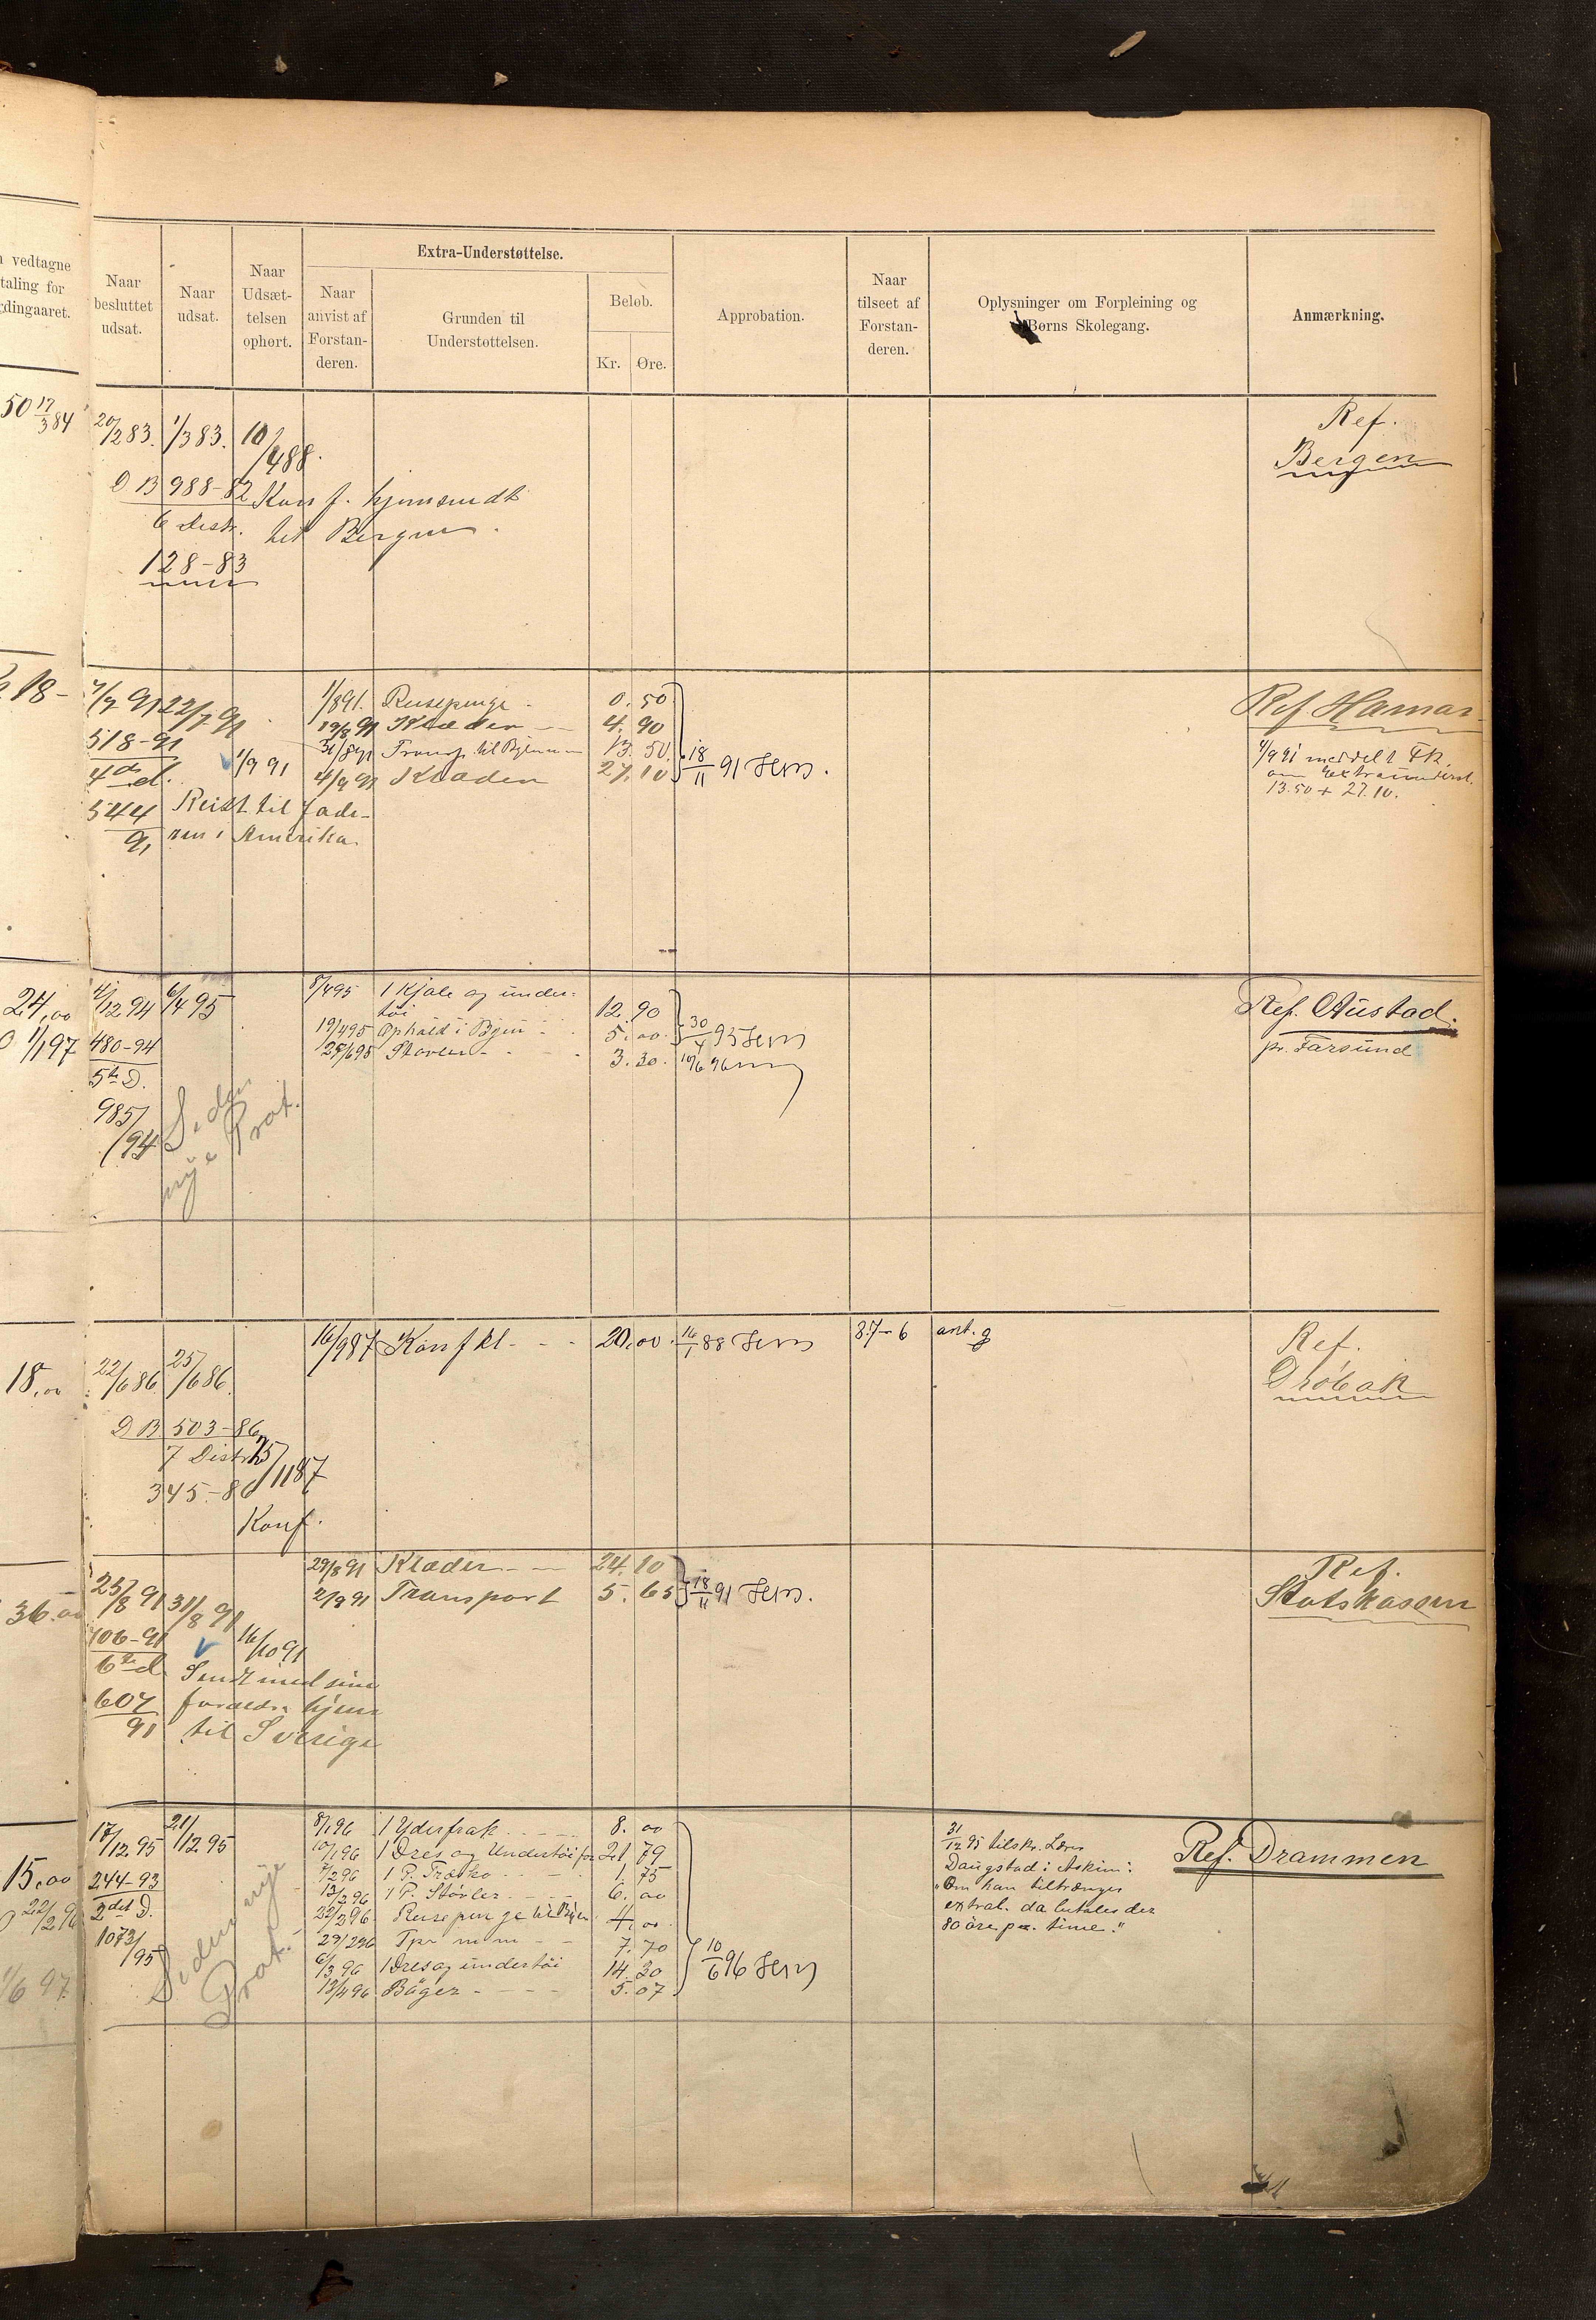 vedtagne
taling for
dingaaret.
Naar
besluttet
udsat.
Naar
udsat.
Naar
Udsæt-
telsen
ophørt.
Extra-Understøttelse.
Naar
anvist af
Forstan-
deren.
Grunden til
Understøttelsen.
Beløb.
Kr. Øre.
Approbation.
Naar
tilseet af
Forstan-
deren.
Oplysninger om Forpleining og
Børns Skolegang.
Anmærkning.
50 17/3 84
20/2 83. 1/3 83. 10/4 88.
D B 988-82 Konf. hjemsendt
6 Distr. til Bergen.
128-83
Ref.
Bergen
18-
7/7 91 22/7 91
518-91
4de d. 1/9 91
544 Reist til Fade-
91 ren i Amerika.
1/8 91. Reisepenge - 0.50
19/8 91 Klæder - 4.90
31/8 91 Transp. til Byen 13.50
4/9 91 Klæder 27.10
18/11 91
Ref Hamar
4/9 91 meddelt FK.
om Extraunderst.
13.50 + 27.10.
24,00
1/1 97
4/12 94 6/4 95
480-94
5te D.
985/94
Se den
nye Prot.
5/4 95 1 Kjole og under-
tøi 12.90
19/4 95 Ophold i Byen - 5.00
25/6 95 Støvler - - 3.30
30/4 95
10/6 96
Ref. Austad.
pr. Farsund
18,00
22/6 86 25/6 86
D B 503-86
7 Distr. 15/11 87
345-86
Konf.
16/9 87 Konfkl - - 20.00
16/1 88
87-6 ant. g
Ref.
Drøbak
36.00
25/8 91 31/8 91
706-91 16/10 91
6te d Sendt med sine
607 forældre hjem
91 til Sverige
29/8 91 Klæder - - 24.10
2/9 91 Transport 5.65
18/11 91
Ref.
Statskassen
15,00
17/12 95 21/12 95
244-93
2det D.
1073/95
Se den nye
Prot.
8/1 96 1 Yderfrak - - 8.00
10/1 96 1 Dres og Undertøi for 21.79
7/2 96 1 P. Træsko 1.75
13/2 96 1 P. Støvler - - 6.00
22/2 96 Reisepenge til Byen 4.00
29/2 96 Tpr m m - - 7.70
6/3 96 1 Dres og undertøi 14.30
13/4 96 Bøger - - - 5.07
10/6 96
31/12 95 tilskr. Lærer
Daugstad i Askim:
"Om han tiltrænger
extral. da betales der
80 øre pr. time."
Ref. Drammen
22/2 96
1/6 97